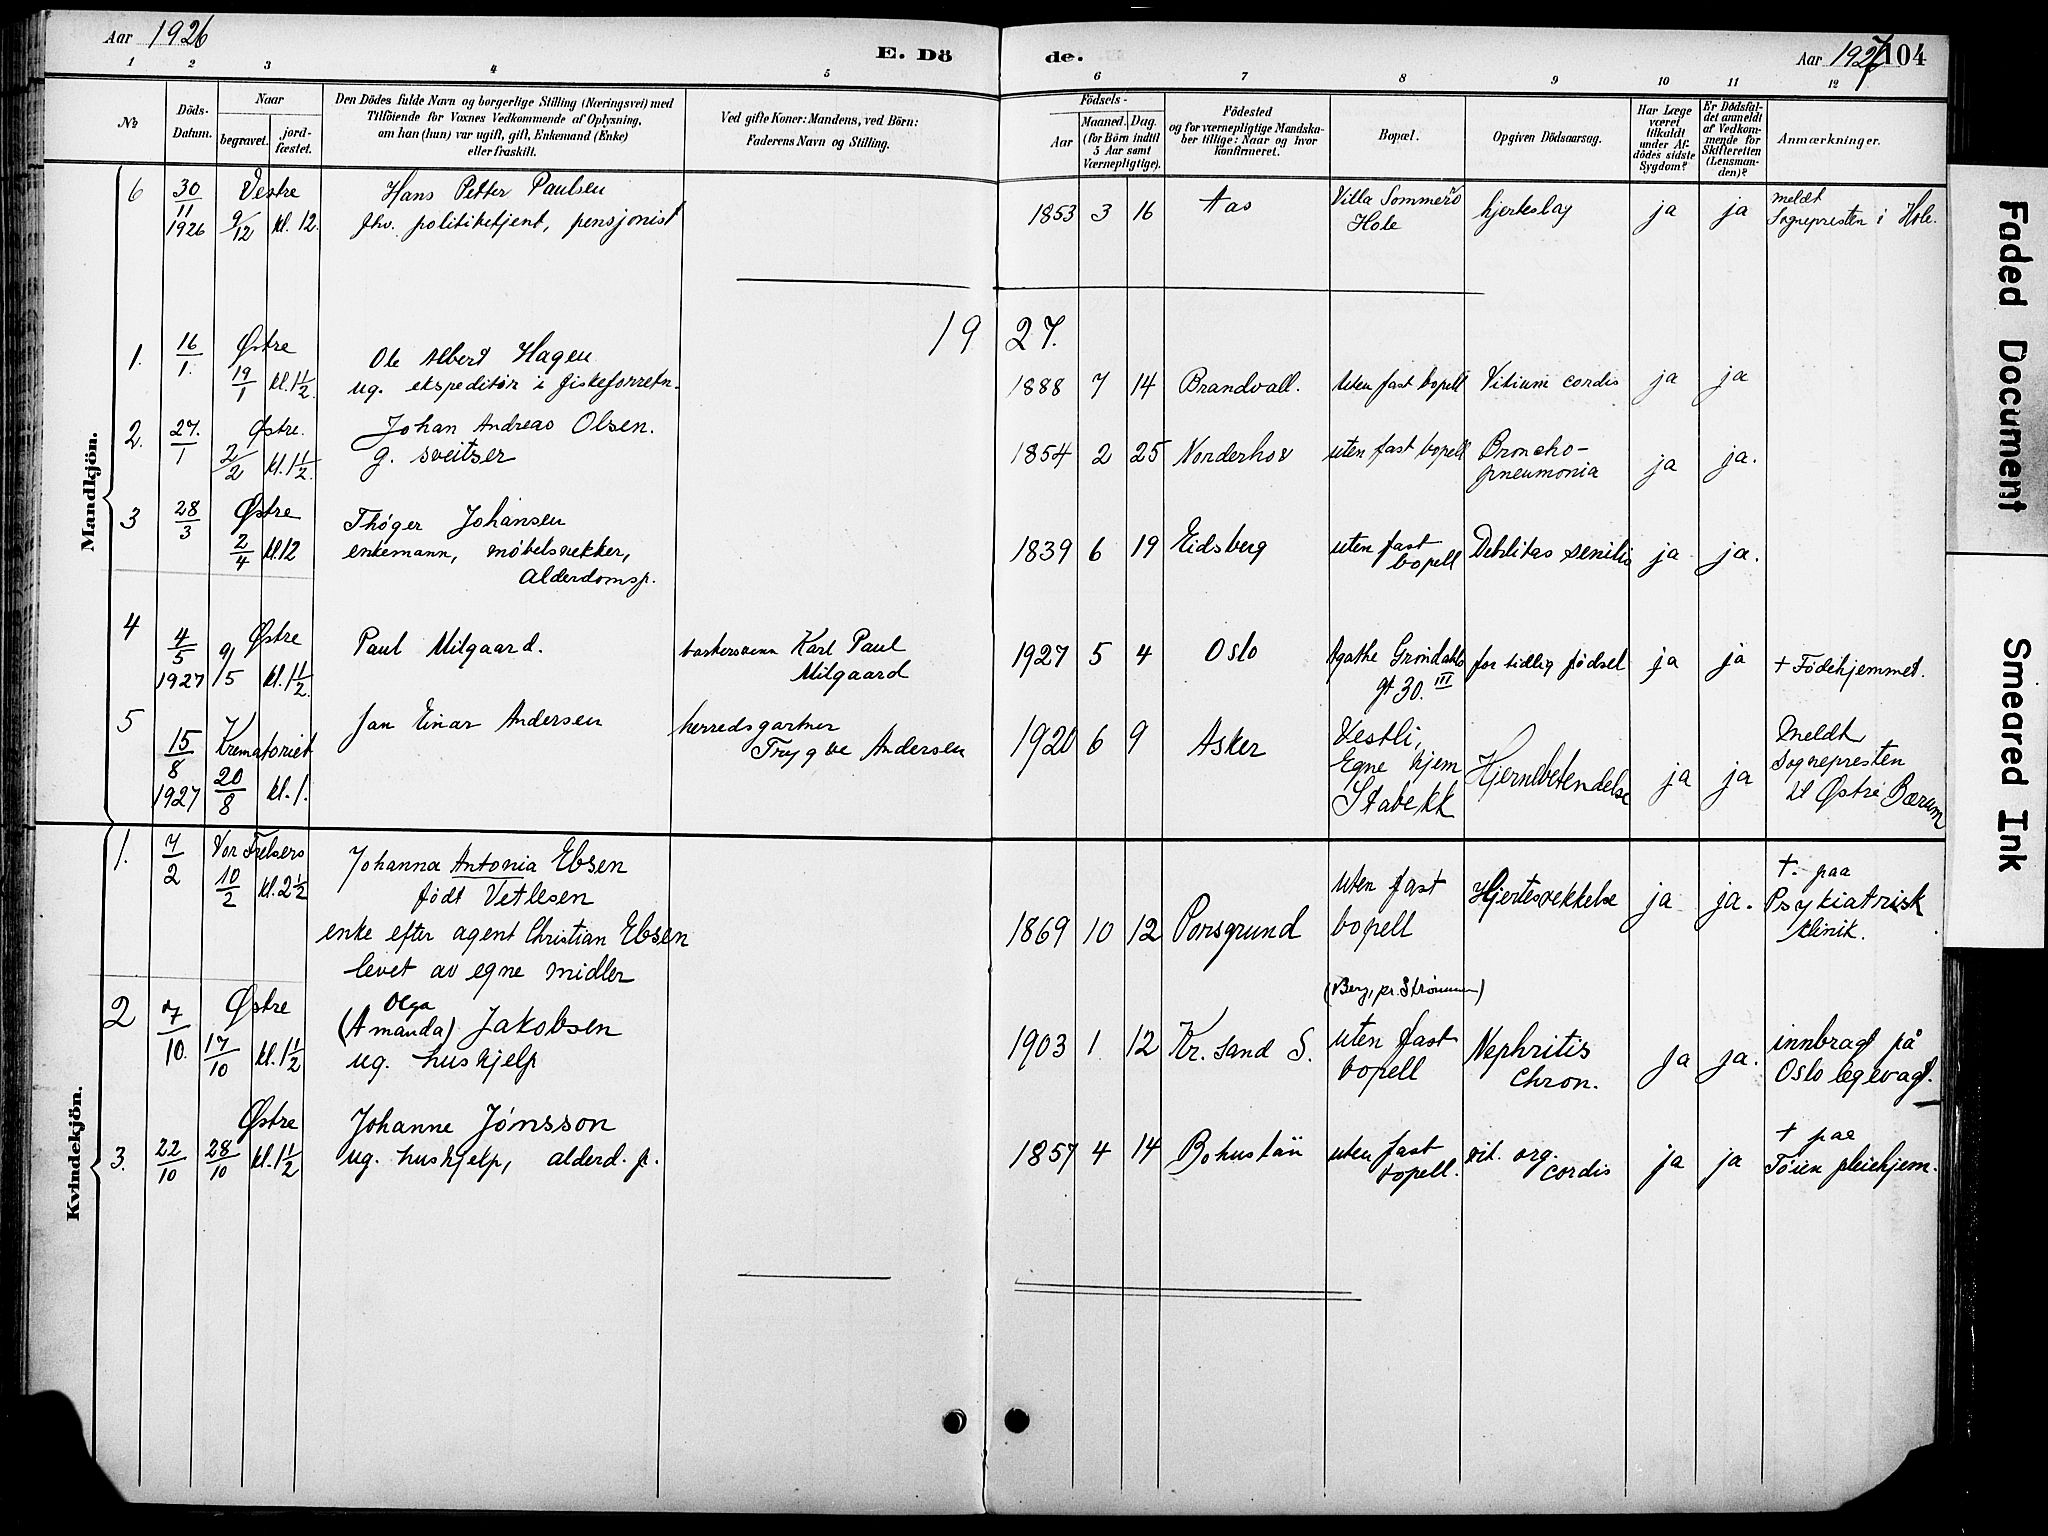 Aar 1926
E. Dö
de.
Aar 1927
104
1 2 3 4 5 6 7 8 9 10 11 12
No
Döds-
Datum.
Naar
begravet.
jord-
fæstet.
Den Dödes fulde Navn og borgerlige Stilling (Næringsvei) med
Tilföiende for Voxnes Vedkommende af Oplysning,
om han (hun) var ugift, gift, Enkemand (Enke)
eller fraskilt.
Ved gifte Koner: Mandens, ved Börn:
Faderens Navn og Stilling.
Födsels-
Aar
Maaned. Dag.
(for Börn indtil
5 Aar samt
Værnepligtige).
Födested
og for værnepligtige Mandska-
ber tillige: Naar og hvor
konfirmeret.
Bopæl.
Opgiven Dödsaarsag.
Har Læge
været
tilkaldt
under Af-
dödes sidste
Sygdom?
Er Dödsfal-
det anmeldt
af Vedkom-
mende for
Skifteretten
(Lensman-
den)?
Anmærkninger.
Mandkjön.
6 30/11 1926 Vestre 9/12 kl. 12.
Hans Petter Paulsen
fhv. politibetjent, pensjonist
1853 3 16 Aas
Villa Sommerro
Hole
hjerteslag ja ja
meldt
Sognepresten i Hole.
1927.
1. 16/1. Østre 19/1 kl. 1 1/2.
Ole Albert Hagen
ug. ekspeditør i fiskeforretn.
1888 7 14 Brandvall. Uten fast bopell Vitium cordis ja ja
2. 27./1 Østre. 2/2 kl. 1 1/2.
Johan Andreas Olsen.
g. sveitser
1854 2 25 Norderhov uten fast bopell
Broncho-
pneumonia
ja ja.
3 28/3 Østre 2/4 kl. 12
Thöger Johansen
enkemann, möbelsnekker,
alderdomsp.
1839 6 19 Eidsberg
uten fast
bopell
Debilitas senilis ja ja.
4 4/5 1927 Østre 9/5 kl. 1 1/2.
Paul Milgaard.
Karl Paul
Milgaard
1927 5 4 Oslo
Agathe Grøndahls
gt 30. III
for tidlig födsel ja ja + Födehjemmet.
5 15/8 1927 Krematoriet 20/8 kl. 1.
Jan Einar Andersen
herredsgartner
Trygve Andersen
1920 6 9 Asker
Vestli,
Egne hjem
Stabekk
Hjernebetendelse ja ja
Meldt
Sognepresten
til Østre Bærum
Kvindekjön.
1. 7/2 Vor Frelsers 10/2 kl. 2 1/2
Johanna Antonia Ebsen
födt Vetlesen
enke efter agent Christian Ebsen
levet av egne midler
1869 10 12 Porsgrund
uten fast
bopell
Hjertesvekkelse ja ja.
+. paa
Psykiatrisk
klinik.
2 7/10. Østre 17/10 kl. 1 1/2
Olga
(Amanda) Jakobsen
ug. huskjelp
1903 1 12 Kr. sand S.
(Berg, pr. Strømmen)
uten fast
bopell
Nephritis
Chron.
ja ja.
innbragt på
Oslo legevagt.
3. 22/10 Østre 28/10 kl. 1 1/2
Johanne Jönsson
ug. huskjelp, alderd. p.
1857 4 14 Bohuslän
uten fast
bopell.
vit. org.
cordis
ja ja
+ paa
Töien pleiehjem.
Faded Document
Smeared Ink